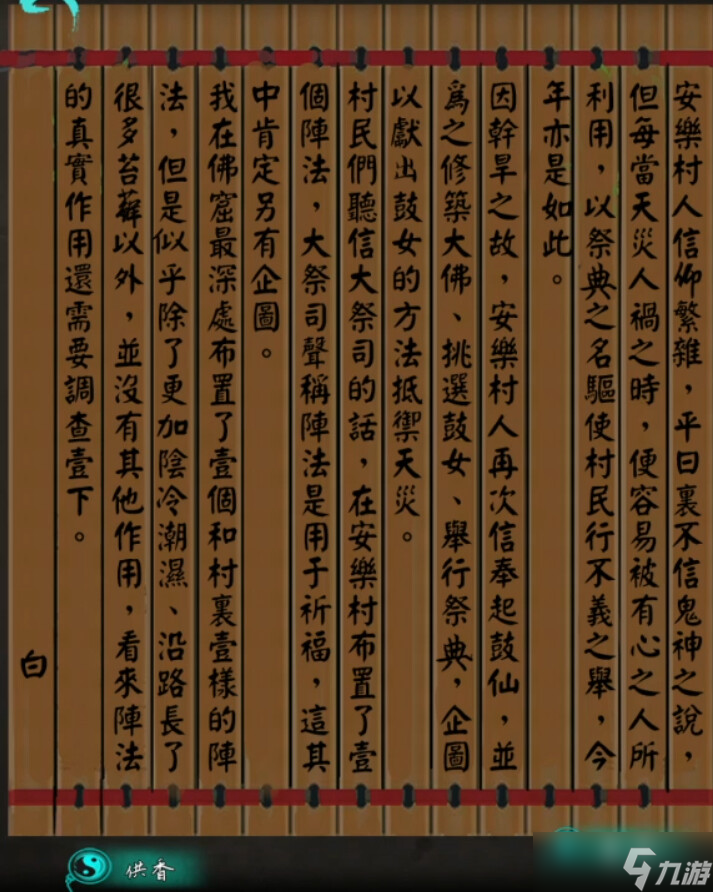 安樂村人信仰繁雜，平日裏不信鬼神之說，
但每當天災人禍之時，便容易被有心之人所
利用，以祭典之名驅使村民行不義之舉，今
年亦是如此。
因幹旱之故，安樂村人再次信奉起鼓仙，並
爲之修築大佛、挑選鼓女、舉行祭典，企圖
以獻出鼓女的方法抵禦天災。
村民們聽信大祭司的話，在安樂村布置了壹
個陣法，大祭司聲稱陣法是用于祈福，這其
中肯定另有企圖。
我在佛窟最深處布置了壹個和村裏壹樣的陣
法，但是似乎除了更加陰冷潮濕、沿路長了
很多苔蘚以外，並沒有其他作用，看來陣法
的真實作用還需要調查壹下。
白
供香
九游